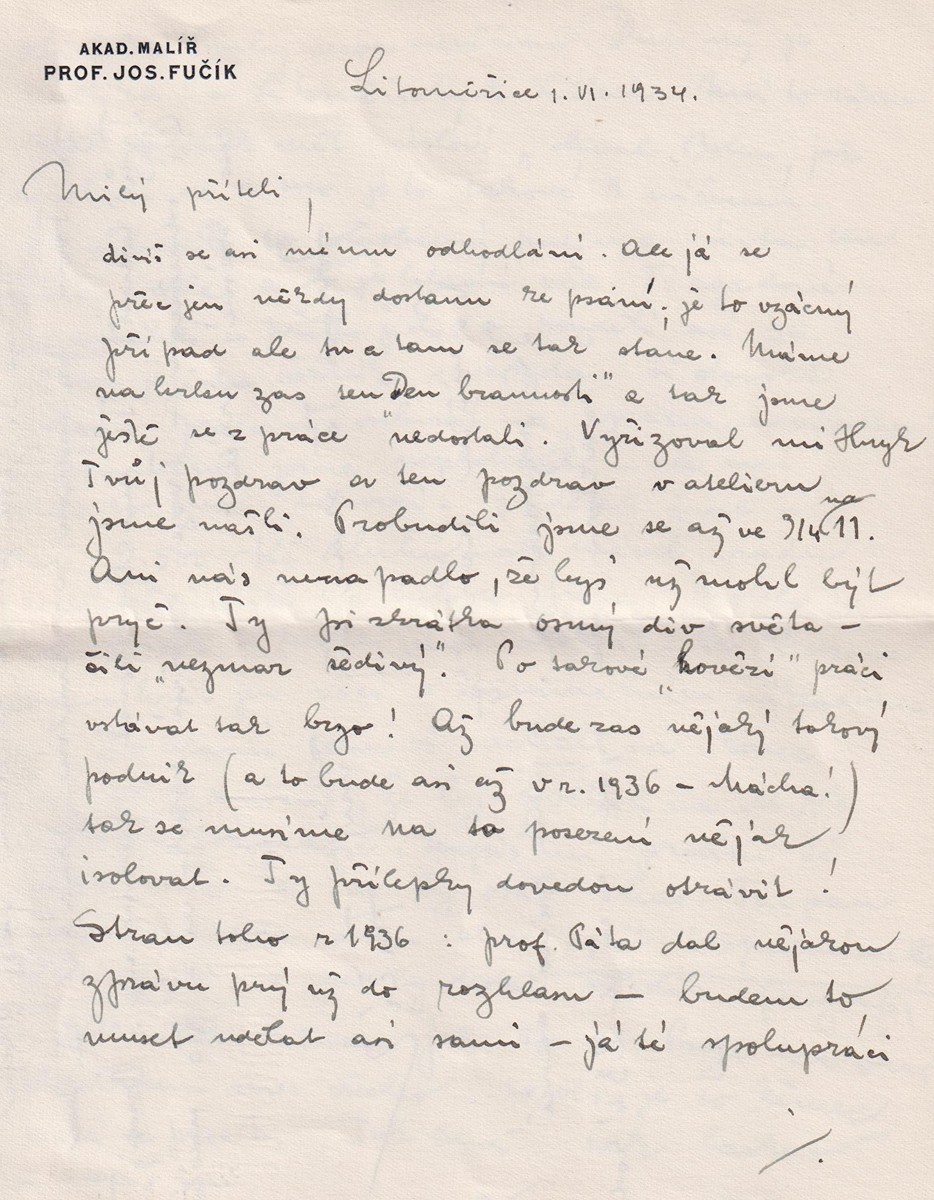 AKAD. MALÍŘ
PROF. JOS. FUČÍK
Litoměřice 1. VI. 1934.
Milý příteli,
divíš se asi mému odhodlání. Ale já se
přec jen někdy dostanu ke psaní; je to vzácný
případ ale tu a tam se tak stane. Máme
na krku zas ten „Den brannosti" a tak jsme
ještě se z práce nedostali. Vyřizoval mi Hnyk
Tvůj pozdrav a ten pozdrav v atelieru
jsme našli. Probudili jsme se až ve 3/4 na 11.
Ani nás nenapadlo, že bys už mohl být
pryč. Ty jsi zkrátka osmý div světa –
čili „nezmar šedivý". Po takové „hovězí" práci
vstávat tak brzo! Až bude zas nějaký takový
podnik (a to bude asi až v r. 1936 – Mácha!)
tak se musíme na to posezení nějak
isolovat. Ty přílepky dovedou otrávit!
Stran toho r 1936 : prof. Páta dal nějakou
zprávu prý už do rozhlasu – budem to
muset udělat asi sami – já té spolupráci
./.